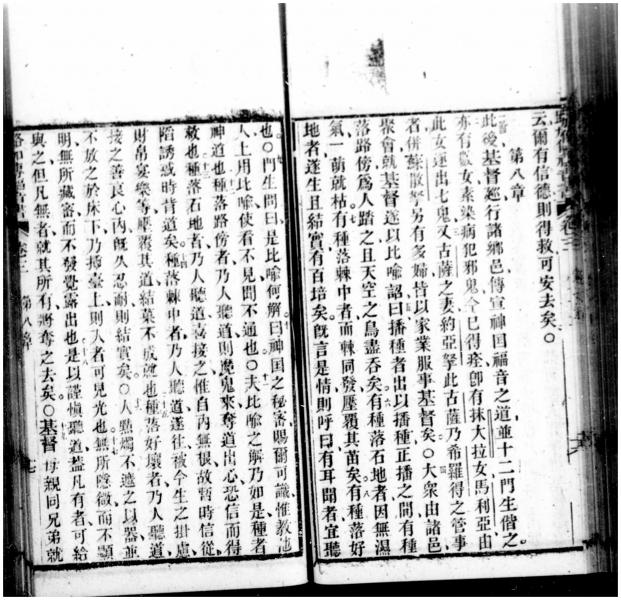 云爾有信德則得救可安去矣○
第八章
此後基督巡行諸鄉邑傳宣神国福音之道並十二門生偕之
亦有數女素染病犯邪鬼今已得痊卽有抹大拉女馬利亞由
此女逐出七鬼又古薩之妻約亞拏此古薩乃希羅得之管事
者併蘇散拏另有多婦皆以家業服事基督矣○大衆由諸邑
聚會就基督遂以比喻詔曰播種者出以播種正播之間有種
落路傍爲人踏之且天空之鳥盡吞矣有種落石地者因無濕
氣一萌就枯有種落棘中者而棘同發壓覆其苗矣有種落好
地者遂生且結實有百培矣旣言是情則呼曰有耳聞者宜聽
也○門生問曰是比喻何解曰神国之秘密賜爾可識惟敎他
人上用比喻使看不見聞不通也○夫比喻之解乃如是種者
神道也種落路傍者乃人聽道則魔鬼來奪道出心恐信而得
救也種落石地者乃人聽道喜接之惟自內無根故暫時信從
陷誘或時背道矣種落棘中者乃人聽道遂往被今生之掛慮
財帛宴樂等壓覆其道結菓不成就也種落好壤者乃人聽道
接之善良心內旣久忍耐則結實矣○人點燭不遮之以器並
不放之於床下乃臺上則入者可見光也無所隱微而不顯
明無所藏密而不發覺露出也是以謹愼聽道蓋凡有者可給
與之但凡無者就其所有將奪之去矣○基督母親同兄弟就
路加傳福音書 卷三 第八章 七